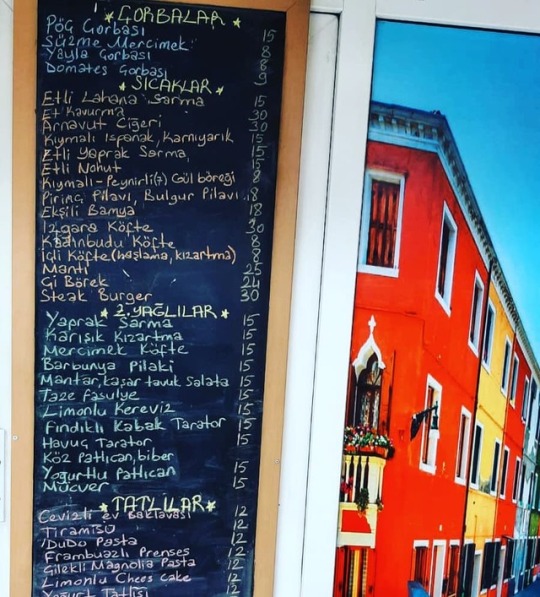 ★ ÇORBALAR ★
Pöç Çorbası 15
Süzme Mercimek 8
Yayla Çorbası 8
Domates Çorbası 9
★ SICAKLAR ★
Etli Lahana Sarma 15
Et Kavurma 30
Arnavut Ciğeri 30
Kıymalı Ispanak, Karnıyarık 15
Etli Yaprak Sarma 15
Etli Nohut 15
Kıymalı-Peynirli(7) Gül böreği 8
Pirinç Pilavı, Bulgur Pilavı 8
Ekşili Bamya 18
Izgara Köfte 30
Kadınbudu Köfte 8
İçli Köfte (haşlama, kızartma) 8
Mantı 25
Çi Börek 24
Steak Burger 30
★ Z.YAĞLILAR ★
Yaprak Sarma 15
Karışık Kızartma 15
Mercimek Köfte 15
Barbunya Pilaki 15
Mantar, kaşar tavuk Salata 15
Taze fasulye 15
Limonlu Kereviz 15
Fındıklı Kabak Tarator 15
Havuç Tarator 15
Köz Patlıcan, biber
Yoğurtlu Patlıcan 15
Mücver 15
★ TATLILAR ★
Cevizli ev Baklavası 12
Tiramisu 12
DuDu Pasta 12
Frambuazlı Prenses 12
Çilekli Magnolia Pasta 12
Limonlu Chees Cake 12
Yoğurt Tatlısı 12